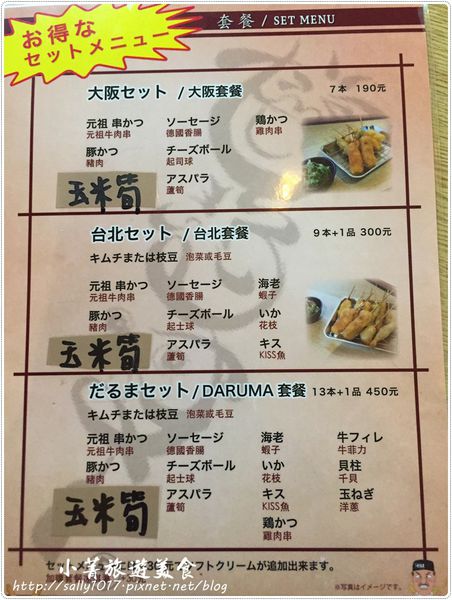 お得な
セットメニュー
套餐 / SET MENU
大阪セット / 大阪套餐 7本 190元
元祖 串かつ ソーセージ 鶏かつ
元祖牛肉串 德國香腸 雞肉串
豚かつ チーズボール
豬肉 起司球
玉米筍 アスパラ
蘆筍
台北セット / 台北套餐 9本+1品 300元
キムチまたは枝豆 泡菜或毛豆
元祖 串かつ ソーセージ 海老
元祖牛肉串 德國香腸 蝦子
豚かつ チーズボール いか
豬肉 起士球 花枝
玉米筍 アスパラ キス
蘆筍 KISS魚
だるまセット / DARUMA 套餐 13本+1品 450元
キムチまたは枝豆 泡菜或毛豆
元祖 串かつ ソーセージ 海老 牛フィレ
元祖牛肉串 德國香腸 蝦子 牛菲力
豚かつ チーズボール いか 貝柱
豬肉 起士球 花枝 干貝
玉米筍 アスパラ キス 玉ねぎ
蘆筍 KISS魚 洋蔥
鶏かつ
雞肉串
セットメニューに フトクリームが追加出来ます。
小菁旅遊美食
http://sally1017.pixnet.net/blog
※写真はイメージです。